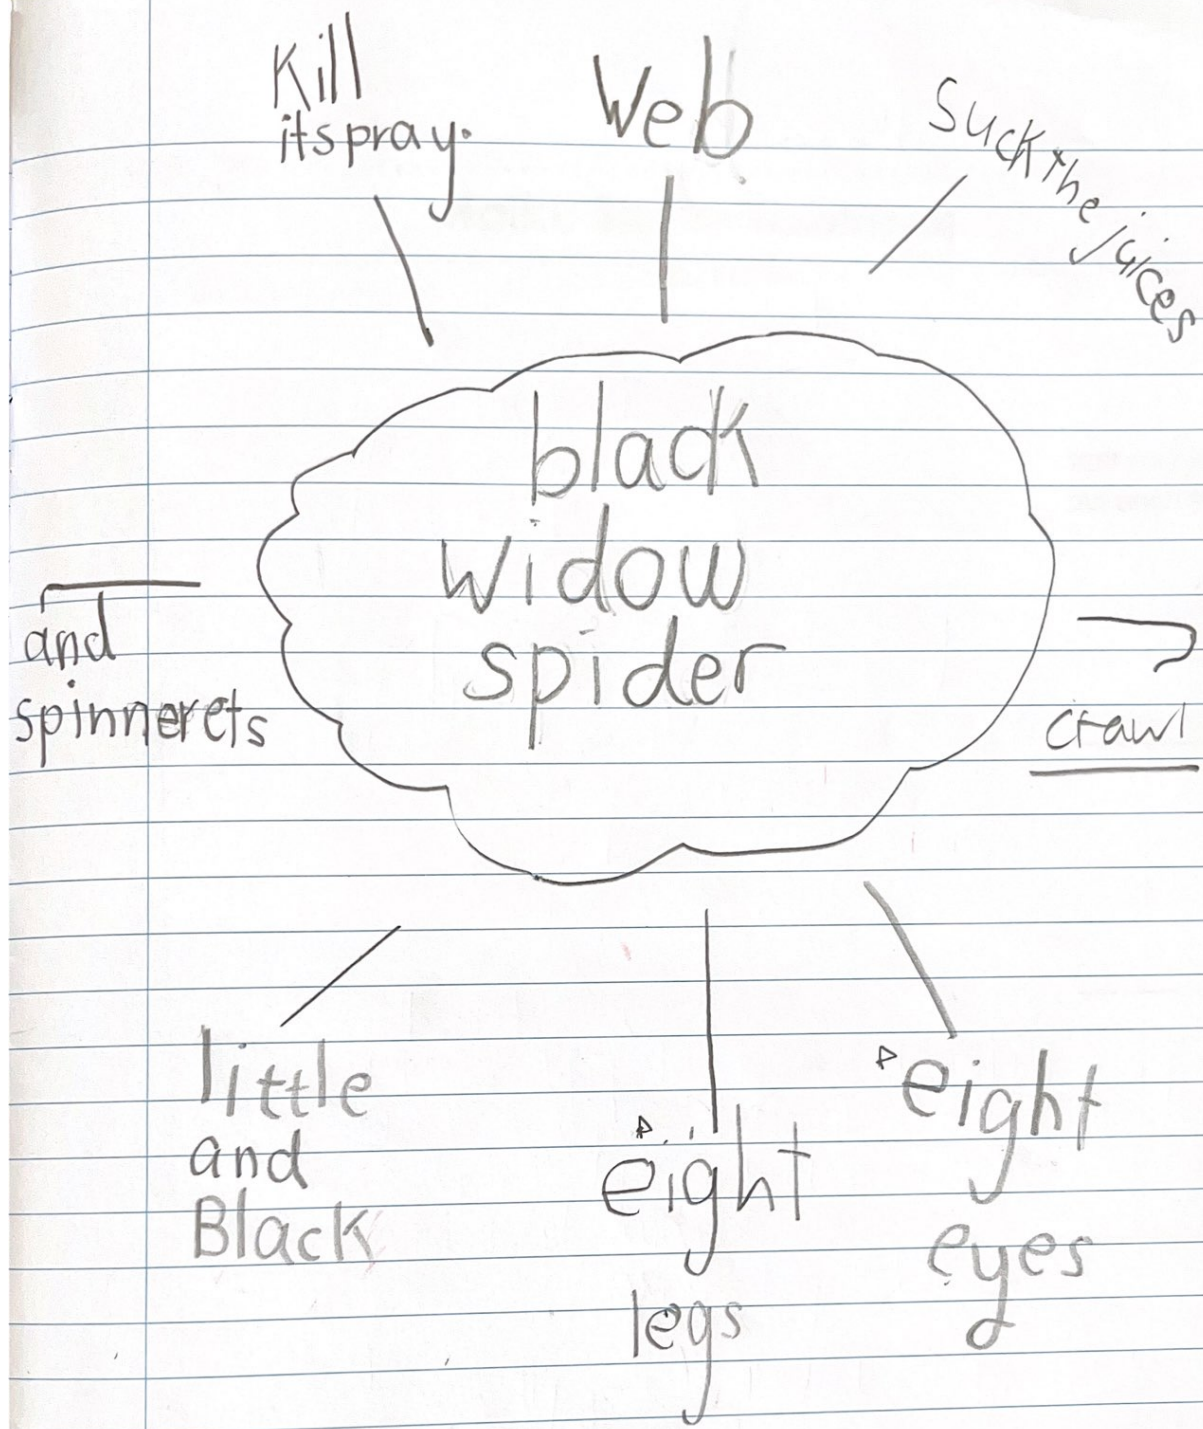 Kill
itspray.
Web
Suck the juices
black
widow
spider
and
spinnerets
crawl
little
and
Black
eight
legs
eight
eyes